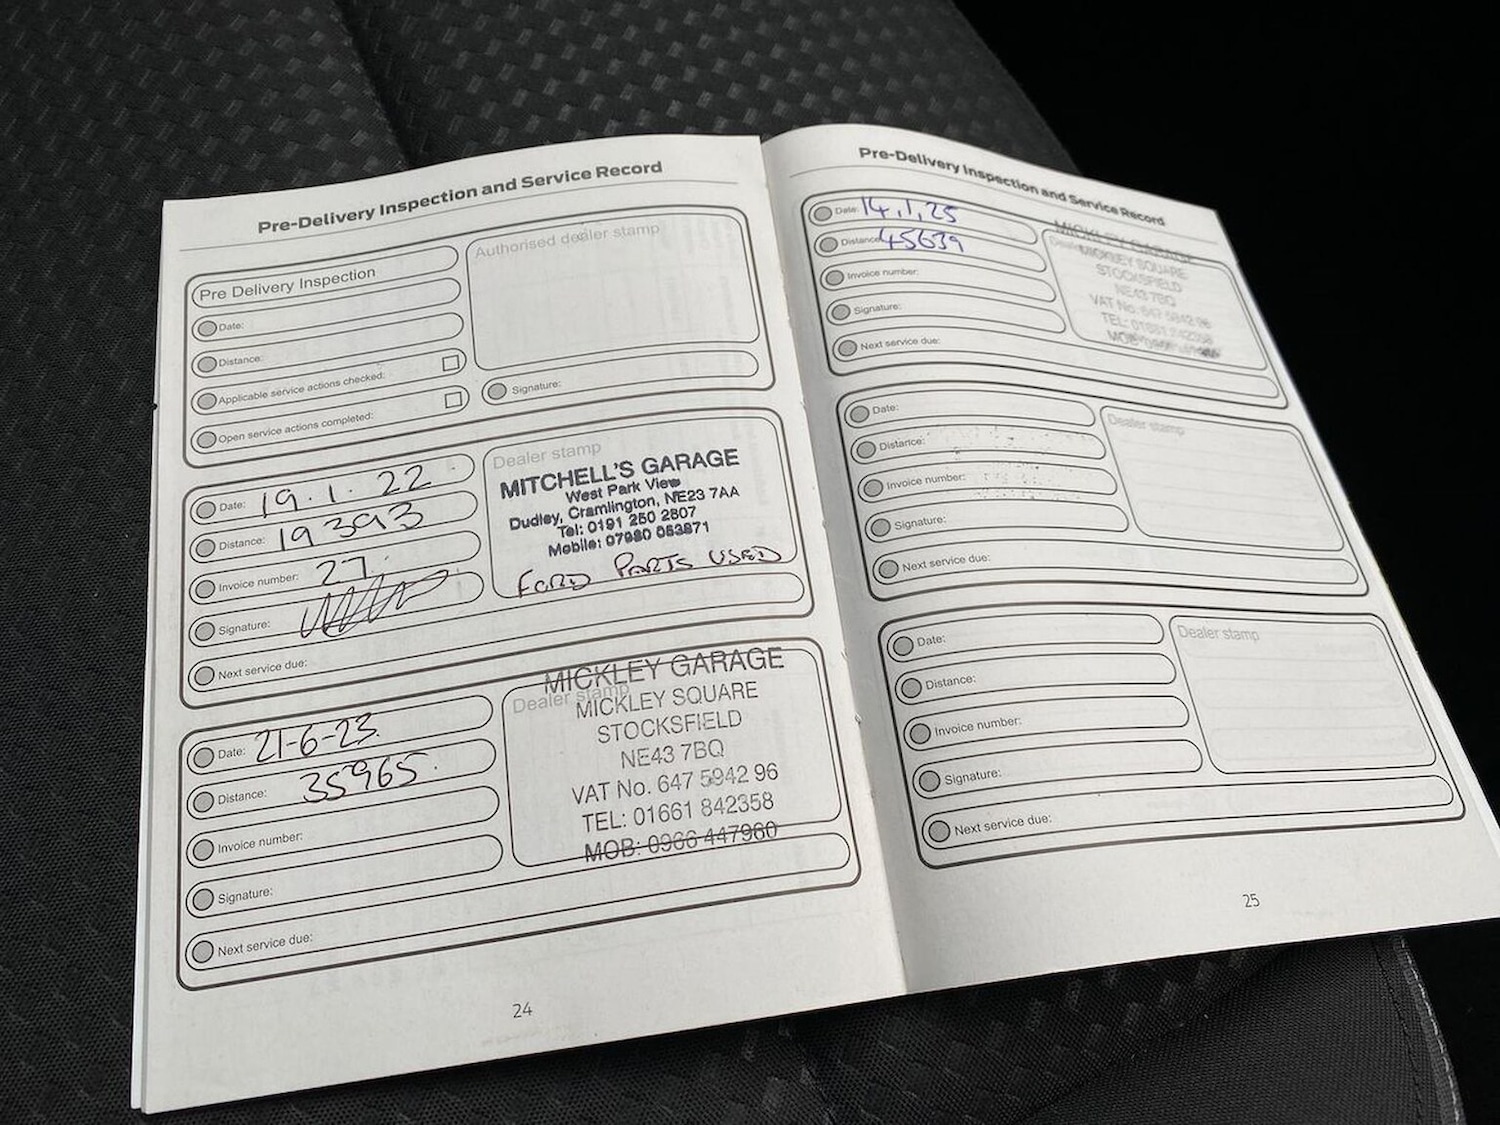 Pre-Delivery Inspection and Service Record
Pre Delivery Inspection
Date:
Distance:
Applicable service actions checked:
Open service actions completed:
Authorised dealer stamp
Signature:
Date: 19.1.22
Distance: 19393
Invoice number: 27.
Signature:
Next service due:
Dealer stamp
MITCHELL'S GARAGE
West Park View
Dudley, Cramlington, NE23 7AA
Tel: 0191 250 2807
Mobile: 07980 053871
FORD PARTS USED
Date: 21-6-23.
Distance: 35965.
Invoice number:
Signature:
Next service due:
Dealer stamp
MICKLEY GARAGE
MICKLEY SQUARE
STOCKSFIELD
NE43 7BQ
VAT No. 647 5942 96
TEL: 01661 842358
MOB: 0966 447960
24
Pre-Delivery Inspection and Service Record
Date: 14.1.25
Distance: 45639
Invoice number:
Signature:
Next service due:
MICKLEY GARAGE
MICKLEY SQUARE
STOCKSFIELD
NE43 7BQ
VAT No. 647 5942 96
TEL: 01661 842358
Date:
Distance:
Invoice number:
Signature:
Next service due:
Dealer stamp
Date:
Distance:
Invoice number:
Signature:
Next service due:
Dealer stamp
25